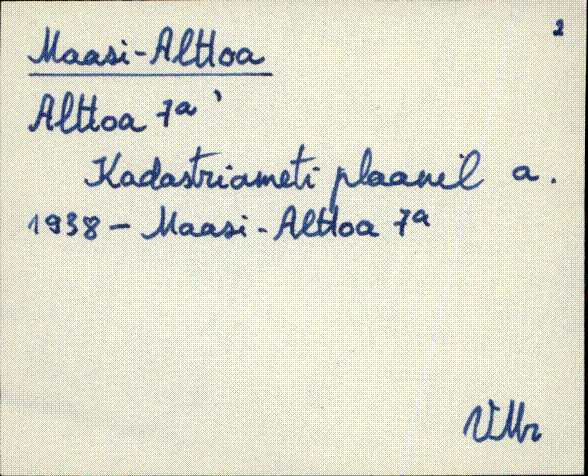 2
Maasi-Alttoa
Alttoa 7a'
Kadastriameti plaanil a.
1938 - Maasi-Alttoa 7a
VMr